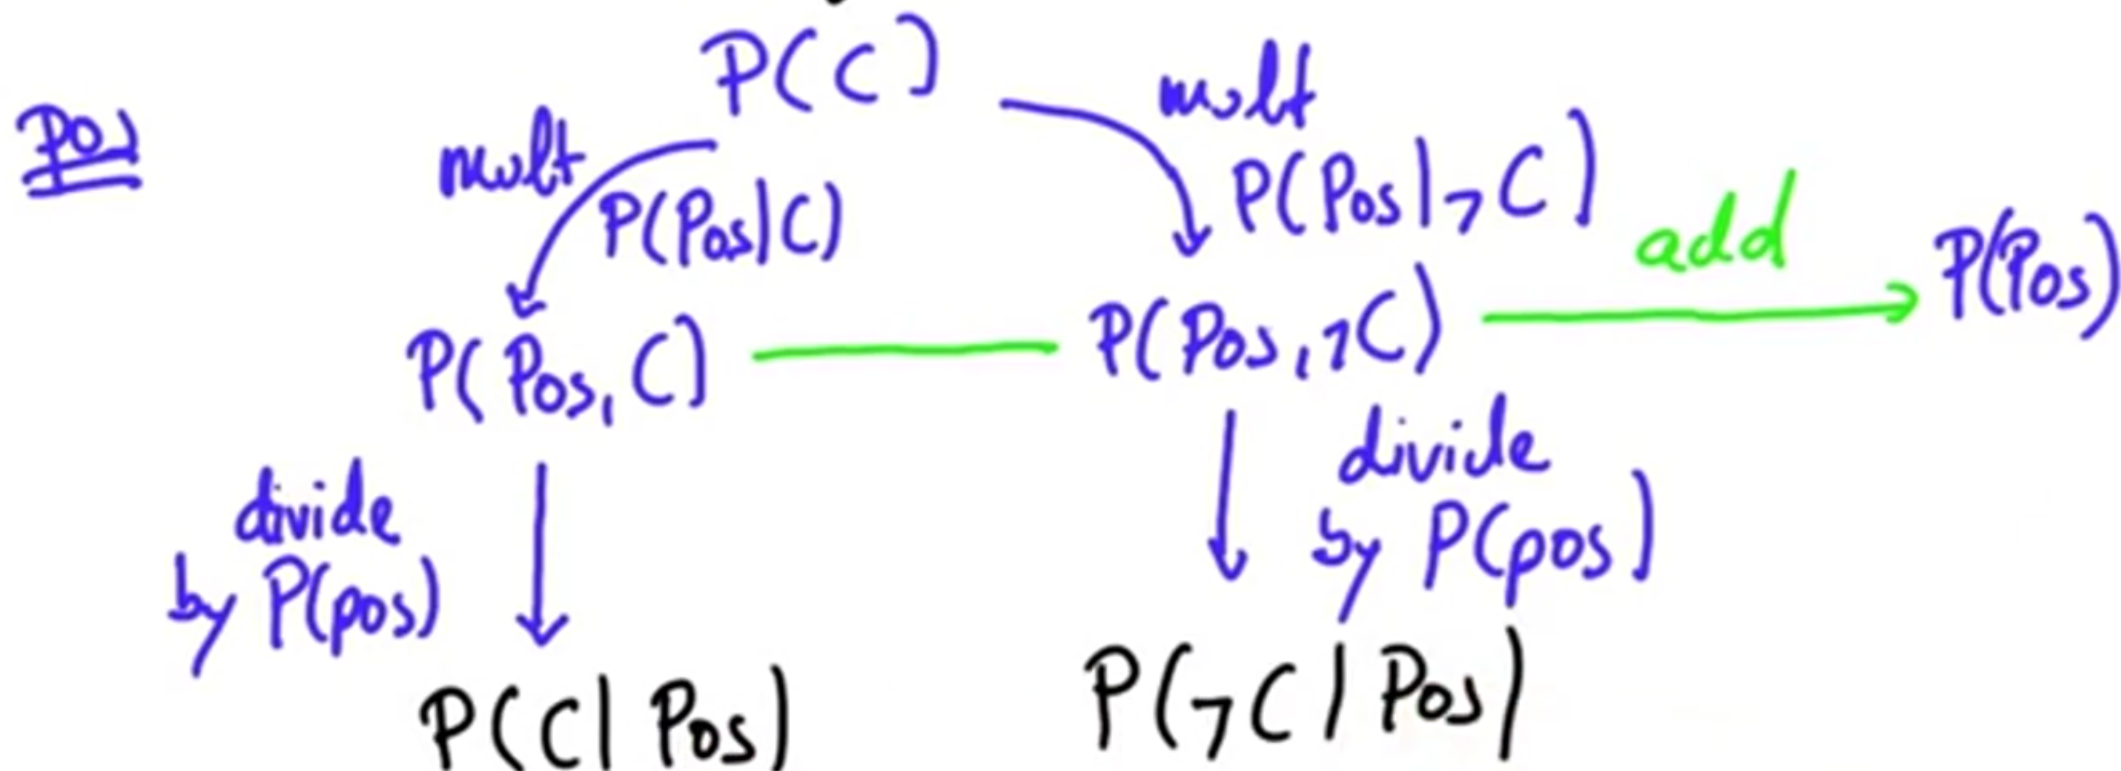 P(C)
Pos
mult
P(Pos|C)
mult
P(Pos|¬C)
add
P(Pos)
P(Pos, C)
P(Pos, ¬C)
divide
by P(pos)
divide
by P(pos)
P(C|Pos)
P(¬C|Pos)